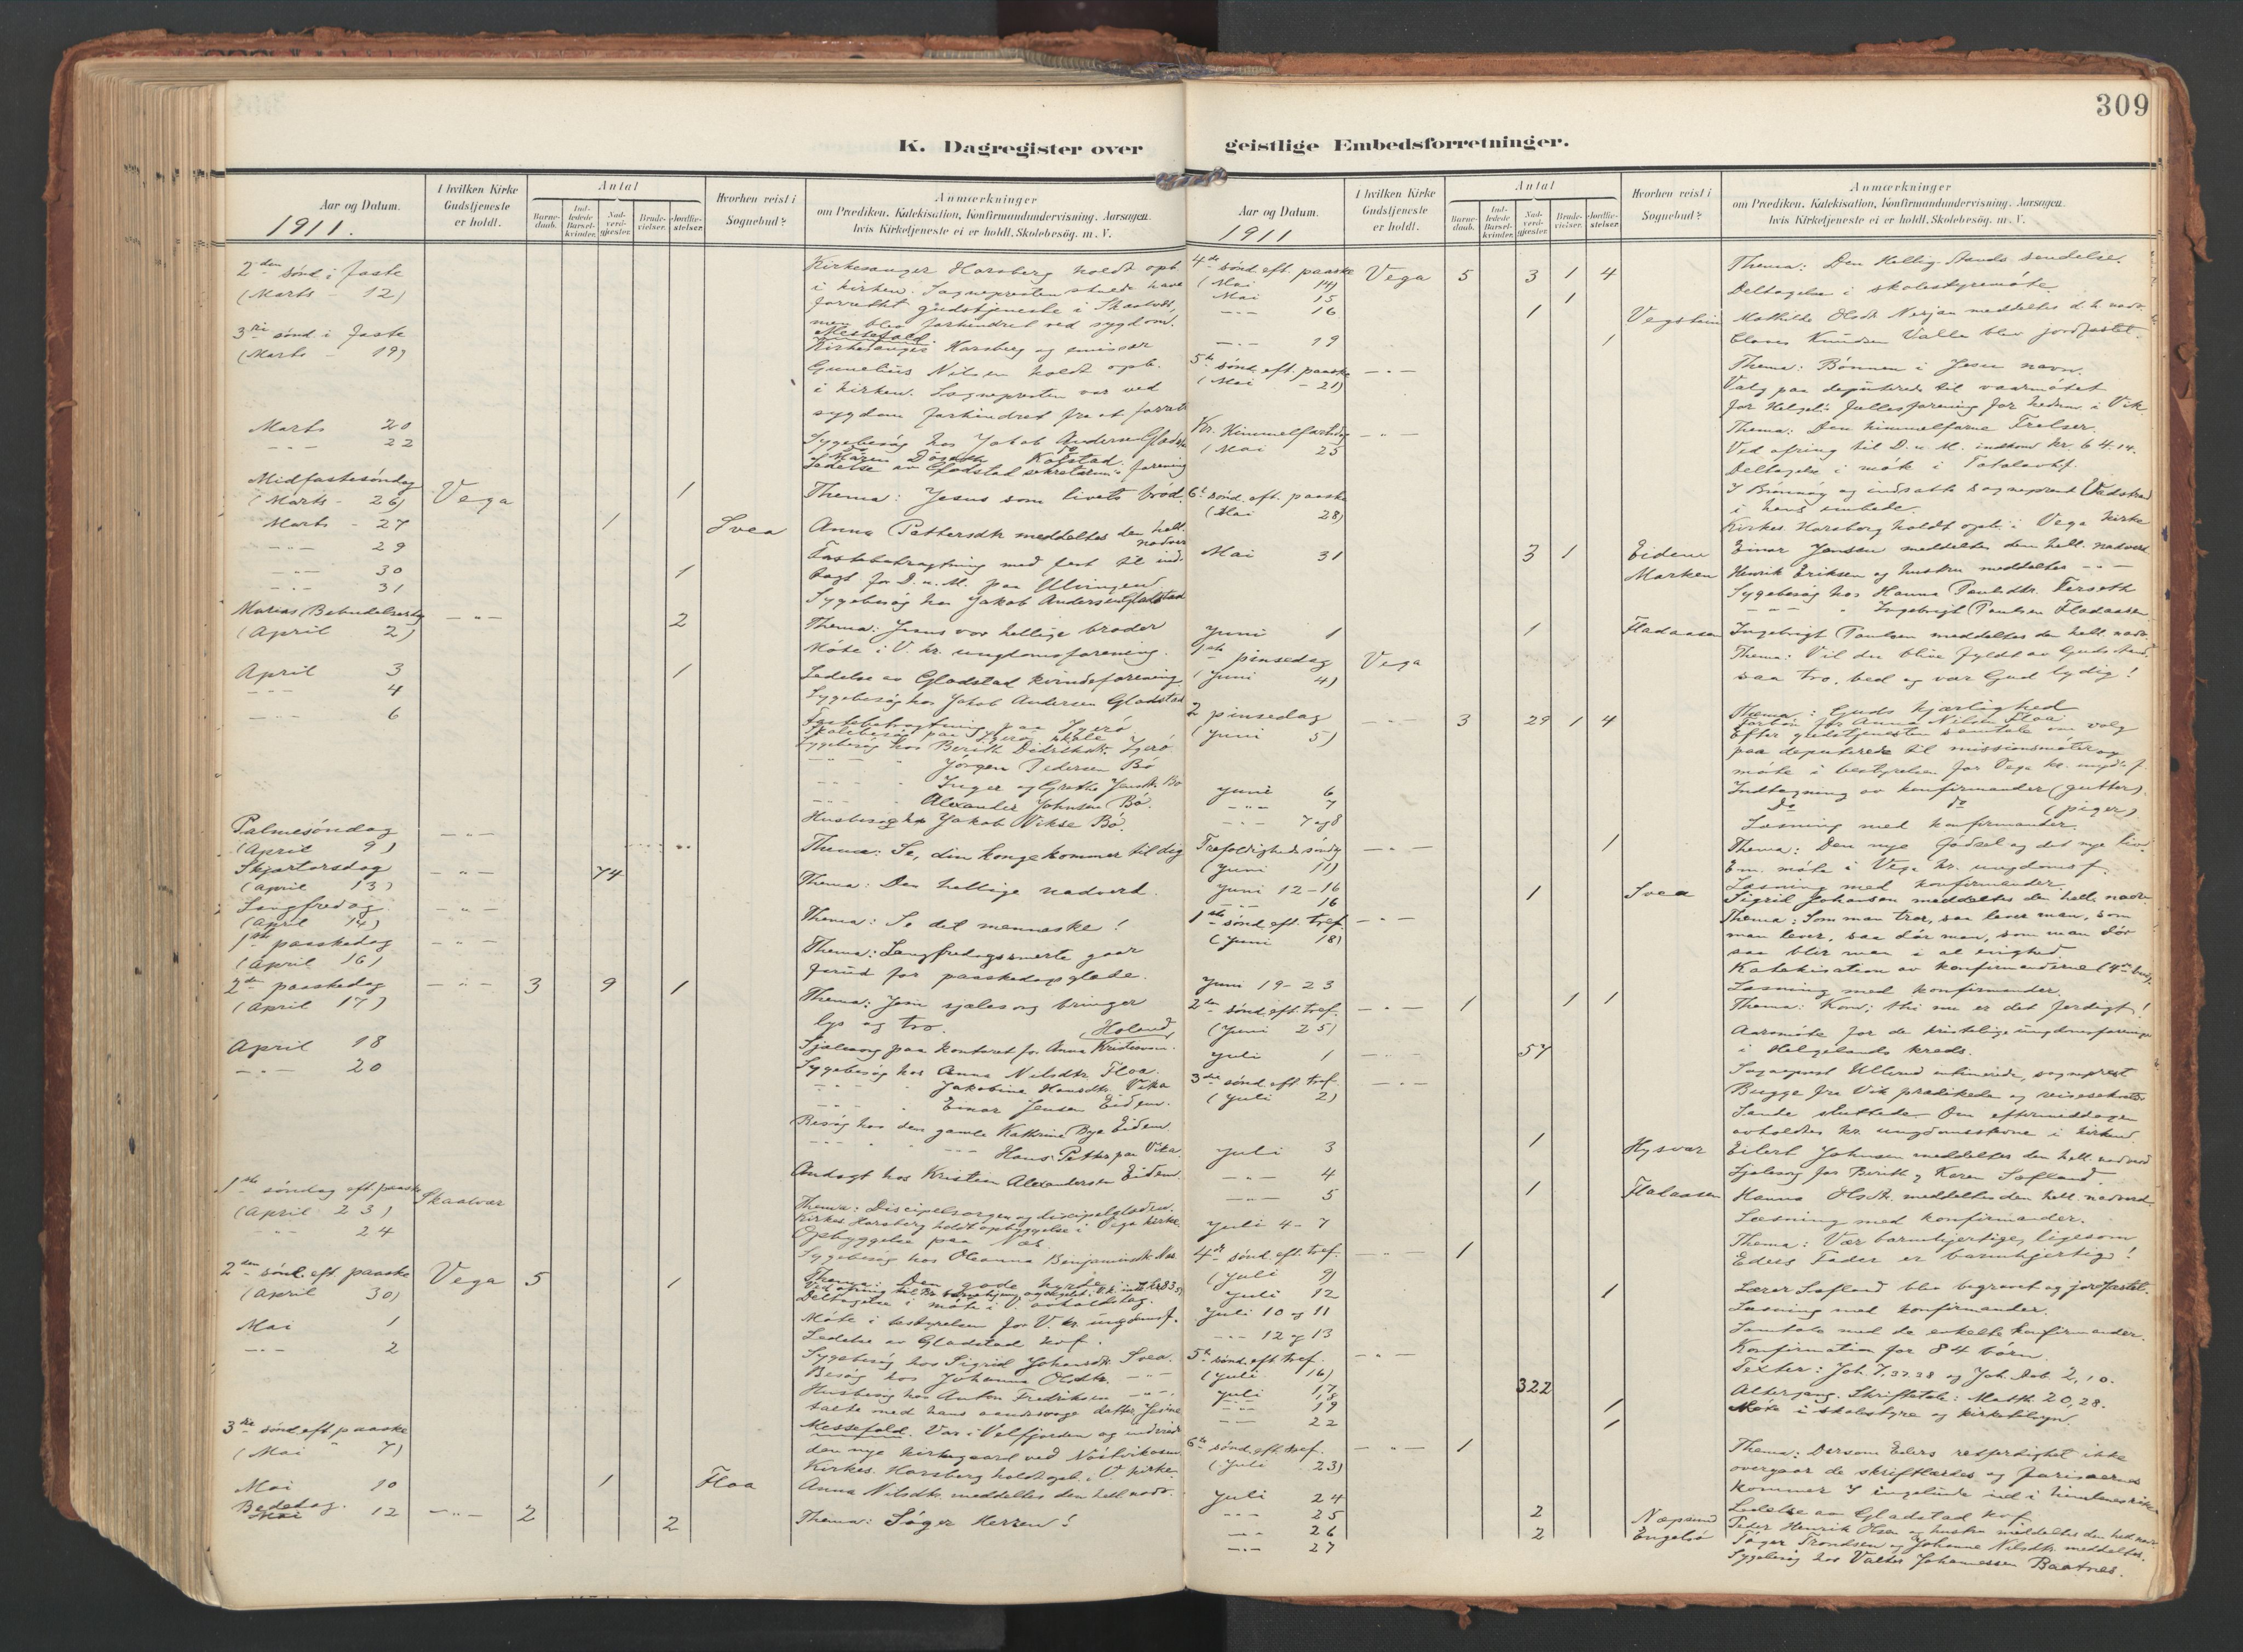 309
K. Dagregister over
geistlige Embedsforretninger.
Aar og Datum.
I hvilken Kirke Gudstjeneste er holdt.
Antal
Barnedaab.
Indledede Barselkvinder.
Nadverdgjester.
Brudevielser.
Jordfæstelser.
Hvorhen reist i Sognebud?
Anmærkninger
om Prædiken, Katekisation, Konfirmandundervisning, Aarsagen,
hvis Kirketjeneste ei er holdt, Skolebesøg, m. V.
1911.
2den sønd. i faste Kirkesanger Horsberg holdt opb.
(Marts - 12) i kirken. Sognepresten skulde have
forrettet gudstjeneste i Skaalvær,
men blev forhindret ved sygdom.
3die sønd. i faste Messefald.
(Marts - 19) Kirkesanger Horsberg og emissær
Gunelius Nilsen holdt opb.
i kirken. Sognepresten var ved
sygdom forhindret fra at forrette
Marts 20 Sygebesøg hos Jakob Andersen Gladstad
-"- 22 Kolstad
Ledelse av Gladstad forening
Midfastesøndag
(Marts - 26) Vega 1 Thema: Jesus som livets brød.
Marts - 27 1 Svea Anna Pettersdtr. meddeltes den hell. nadver
-"- 29 Fastebetragtning med fest til ind-
-"- 30 1 tægt for D. n. M. paa Ylvingen
-"- 31 Sygebesøg hos Jakob Andersen Gladstad
Marias Bebudelsesdag
(April 2) -"- 2 Thema: Jesus vor hellige broder
Møte i V. kr. ungdomsforening.
April 3 1 Ledelse av Gladstad kvindeforening
-"- 4 Sygebesøg hos Jakob Andersen Gladstad
-"- 6 Fastebetragtning paa Igerø
Skolebesøg paa Igerø skole
Sygebesøg hos Berith Didriksdtr. Igerø
-"- Jørgen Pedersen Bø
-"- Inger og Grethe Jensdtr. Bø
-"- Alexander Johnsen Bø.
Husbesøg hos Jakob Wikse Bø.
Palmesøndag
(April 9) -"- Thema: Se, din konge kommer til dig
Skjærtorsdag
(April 13) -"- 74 Thema: Den hellige nadverd.
Langfredag
(April 14) -"- Thema: Se det menneske!
1ste paaskedag
(April 16) -"- Thema: Langfredagssmerte gaar
forud for paaskedagsglæde.
2den paaskedag
(April 17) -"- 3 9 1 Thema: Jesu sjælesorg bringer
lys og tro.
April 18 Sjælesorg paa kontoret for Anna Kristiansen Holand
-"- 20 Sygebesøg hos Anna Nilsdtr. Floa.
-"- Jakobine Hansdtr. Vika
-"- Einar Jensen Eidem.
Besøg hos den gamle Kathrine Bye Eidem.
-"- Hans Petter paa Vika.
Andagt hos Kristian Alexandersen Eidem.
1ste søndag eft. paaske
(April 23) Skaalvær Thema: Discipelsorgen og discipelglæden.
Kirkes. Horsberg holdt opbyggelse i Vega kirke.
-"- 24 Opbyggelse paa Nes.
Sygebesøg hos Oleanna Benjaminsdtr. Nes
2den sønd. eft. paaske
(April 30) Vega 5 1 Thema: Den gode hyrde.
Deltagelse i møte i V. avholdslag.
Mai 1 Møte i bestyrelsen for V. kr. ungdomsf.
-"- 2 Ledelse av Gladstad kvf.
Sygebesøg hos Sigrid Johansdtr. Svea.
Besøg hos Johanna Olsdtr. -"-
Husbesøg hos Anton Fredriksen -"-
talte med hans datter Jesine
3die sønd. eft. paaske
(Mai " 7) Messefald. Var i Velfjorden og indviede
den nye kirkegaard ved
Kirkes. Horsberg holdt opb. i V. kirke.
Mai 10 1 Floa Anna Nilsdtr. meddeltes den hell. nadv.
Bededag.
Mai 12 -"- 2 2 Thema: Søger Herren!
Aar og Datum.
I hvilken Kirke Gudstjeneste er holdt.
Antal
Barnedaab.
Indledede Barselkvinder.
Nadverdgjester.
Brudevielser.
Jordfæstelser.
Hvorhen reist i Sognebud?
Anmærkninger
om Prædiken, Katekisation, Konfirmandundervisning, Aarsagen,
hvis Kirketjeneste ei er holdt, Skolebesøg, m. V.
1911
4de sønd. eft. paaske
(Mai 14) Vega 5 3 1 4 Thema: Den Hellig-Aands sendelse.
Mai 15 1 Deltagelse i skolestyremøte
-"- 16 1 Vegstein Mathilde Olsdtr. meddeltes d. h. nadv.
-"- 19 1 Knudsen Valla blev jordfæstet.
5te sønd. eft. paaske
(Mai - 21) -"- Thema: Bønnen i Jesu navn.
Valg paa deputerede til vaarmøtet
for Helgel. fællesforening for hedn. i Vik.
Kr. Himmelfartsdag
(Mai 25) -"- Thema: Den himmelfarne Frelser.
Ved ofring til D. n. M. indkom kr. 64.14.
Deltagelse i møte i Totalavhf.
6te sønd. eft. paaske
(Mai 28) I Brønnøy og indsatte sogneprest
i hans embede.
Kirkes. Horsberg holdt opb. i Vega kirke
Mai 31 3 1 Eidem Einar Jensen meddeltes den hell. nadverd
Marken Henrik Eriksen og hustru meddeltes -"-
Sygebesøg hos Hanna Paulsdtr. Ferseth
-"- Ingebrigt Paulsen Fladaasen
Juni 1 1 Fladaasen Ingebrigt Paulsen meddeltes den hell. nadv.
1ste pinsedag
(Juni 4) Vega Thema: Vil du blive fyldt av Guds Aand,
saa tro, bed og vær Gud lydig!
2 pinsedag
(Juni 5) -"- 3 29 1 4 Thema: Guds kjærlighed
Forbøn for Anna Nilsen Floa
Efter gudstjenesten samtale om valg
paa deputerede til missionsmøter og
møte i bestyrelsen for Vega kr. ungd. f.
Juni 6 Indtagning av konfirmander (gutter).
-"- 7 Do do (piger).
-"- 7 og 8 Læsning med konfirmander.
Trefoldighedssøndag
(Juni 11) -"- 1 Thema: Den nye fødsel og det nye liv.
Em. møte i Vega kr. ungdomsf.
Juni 12-16 Læsning med konfirmander.
16 1 Svea Sigrid Johansen meddeltes den hell. nadv.
1ste sønd. eft. tref.
(Juni 18) -"- Thema: Som man tror, saa lever man, som
man lever, saa dør man, som man dør
saa blir man i al evighed.
Katekisation av konfirmanderne
Juni 19-23 Læsning med konfirmander.
2den sønd. eft. tref.
(Juni 25) -"- 1 1 1 Thema: Kom; thi nu er det færdigt!
Aarsmøte for de kristelige ungdomsforeninger
i Helgelands kreds.
Juli 1 -"- 57
3die sønd. eft. tref.
(Juli 2) -"- Sogneprest Ullerud intimerede, sogneprest
Bugge fra Vik prædikede og reisesekretær
Sande sluttede. Om eftermiddagen
avholdtes kr. ungdomsstevne i kirken.
Juli 3 1 Hysvær Eilert Johnsen meddeltes den hell. nadverd
-"- 4 Sjælesorg for Berith og Karen Søfland.
-"- 5 1 Fladaasen Hanna Olsdtr. meddeltes den hell. nadverd.
Juli 4-7 Læsning med konfirmander.
4de sønd. eft. tref.
(Juli 9) -"- 1 Thema: Vær barmhjertige, ligesom
Eders Fader er barmhjertig!
Juli 12 1 Lærer Søfland blev begravet og jordfæstet.
Juli 10 og 11 Læsning med konfirmander.
-"- 12 og 13 Samtale med de enkelte konfirmander.
5te sønd. eft. tref.
(Juli 16) -"- Konfirmation for 84 børn.
Texter: Joh. 7,37.38 og Joh. Aab. 2,10.
Juli 17 322 Altergang. Skriftetale: Matth. 20,28.
18
-"- 19 1 Møte i skolestyre og kirketilsyn.
-"- 22 1
6te sønd. eft. tref.
(Juli 23) -"- 1 Thema: Dersom Eders retfærdighet ikke
overgaar de skriftlærdes og farisæernes
kommer I ingenlunde ind i himlenes rike
Juli 24 Ledelse av Gladstad kvf.
-"- 25 2 Peder Henrik Olsen og hustru meddeltes den hell. nadv.
-"- 26 2 Engelsø Trondsen og Johanne Nilsdtr. meddeltes.
-"- 27 Sygebesøg hos Valter Johannessen Baatnes.